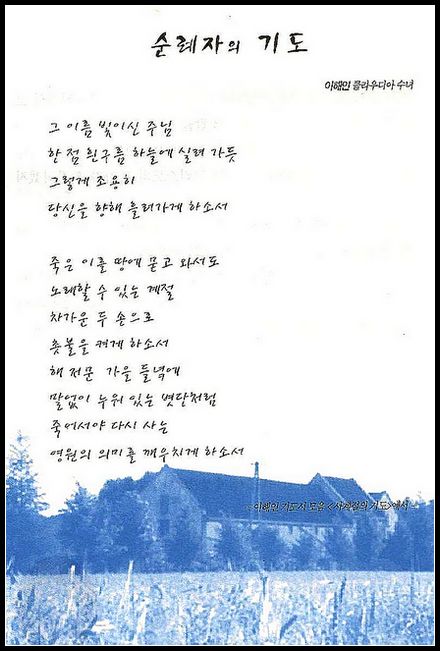 순례자의 기도
이해인 클라우디아 수녀
그 이름 빛이신 주님
한 점 흰구름 하늘에 실려 가듯
그렇게 조용히
당신을 향해 흘러가게 하소서
죽은 이를 땅에 묻고 와서도
노래할 수 있는 계절
차가운 두 손으로
촛불을 켜게 하소서
해 저문 가을 들녘에
말없이 누워 있는 볏단처럼
죽어서야 다시 사는
영원의 의미를 깨우치게 하소서
- 이해인 기도시 모음 <사계절의 기도>에서 -